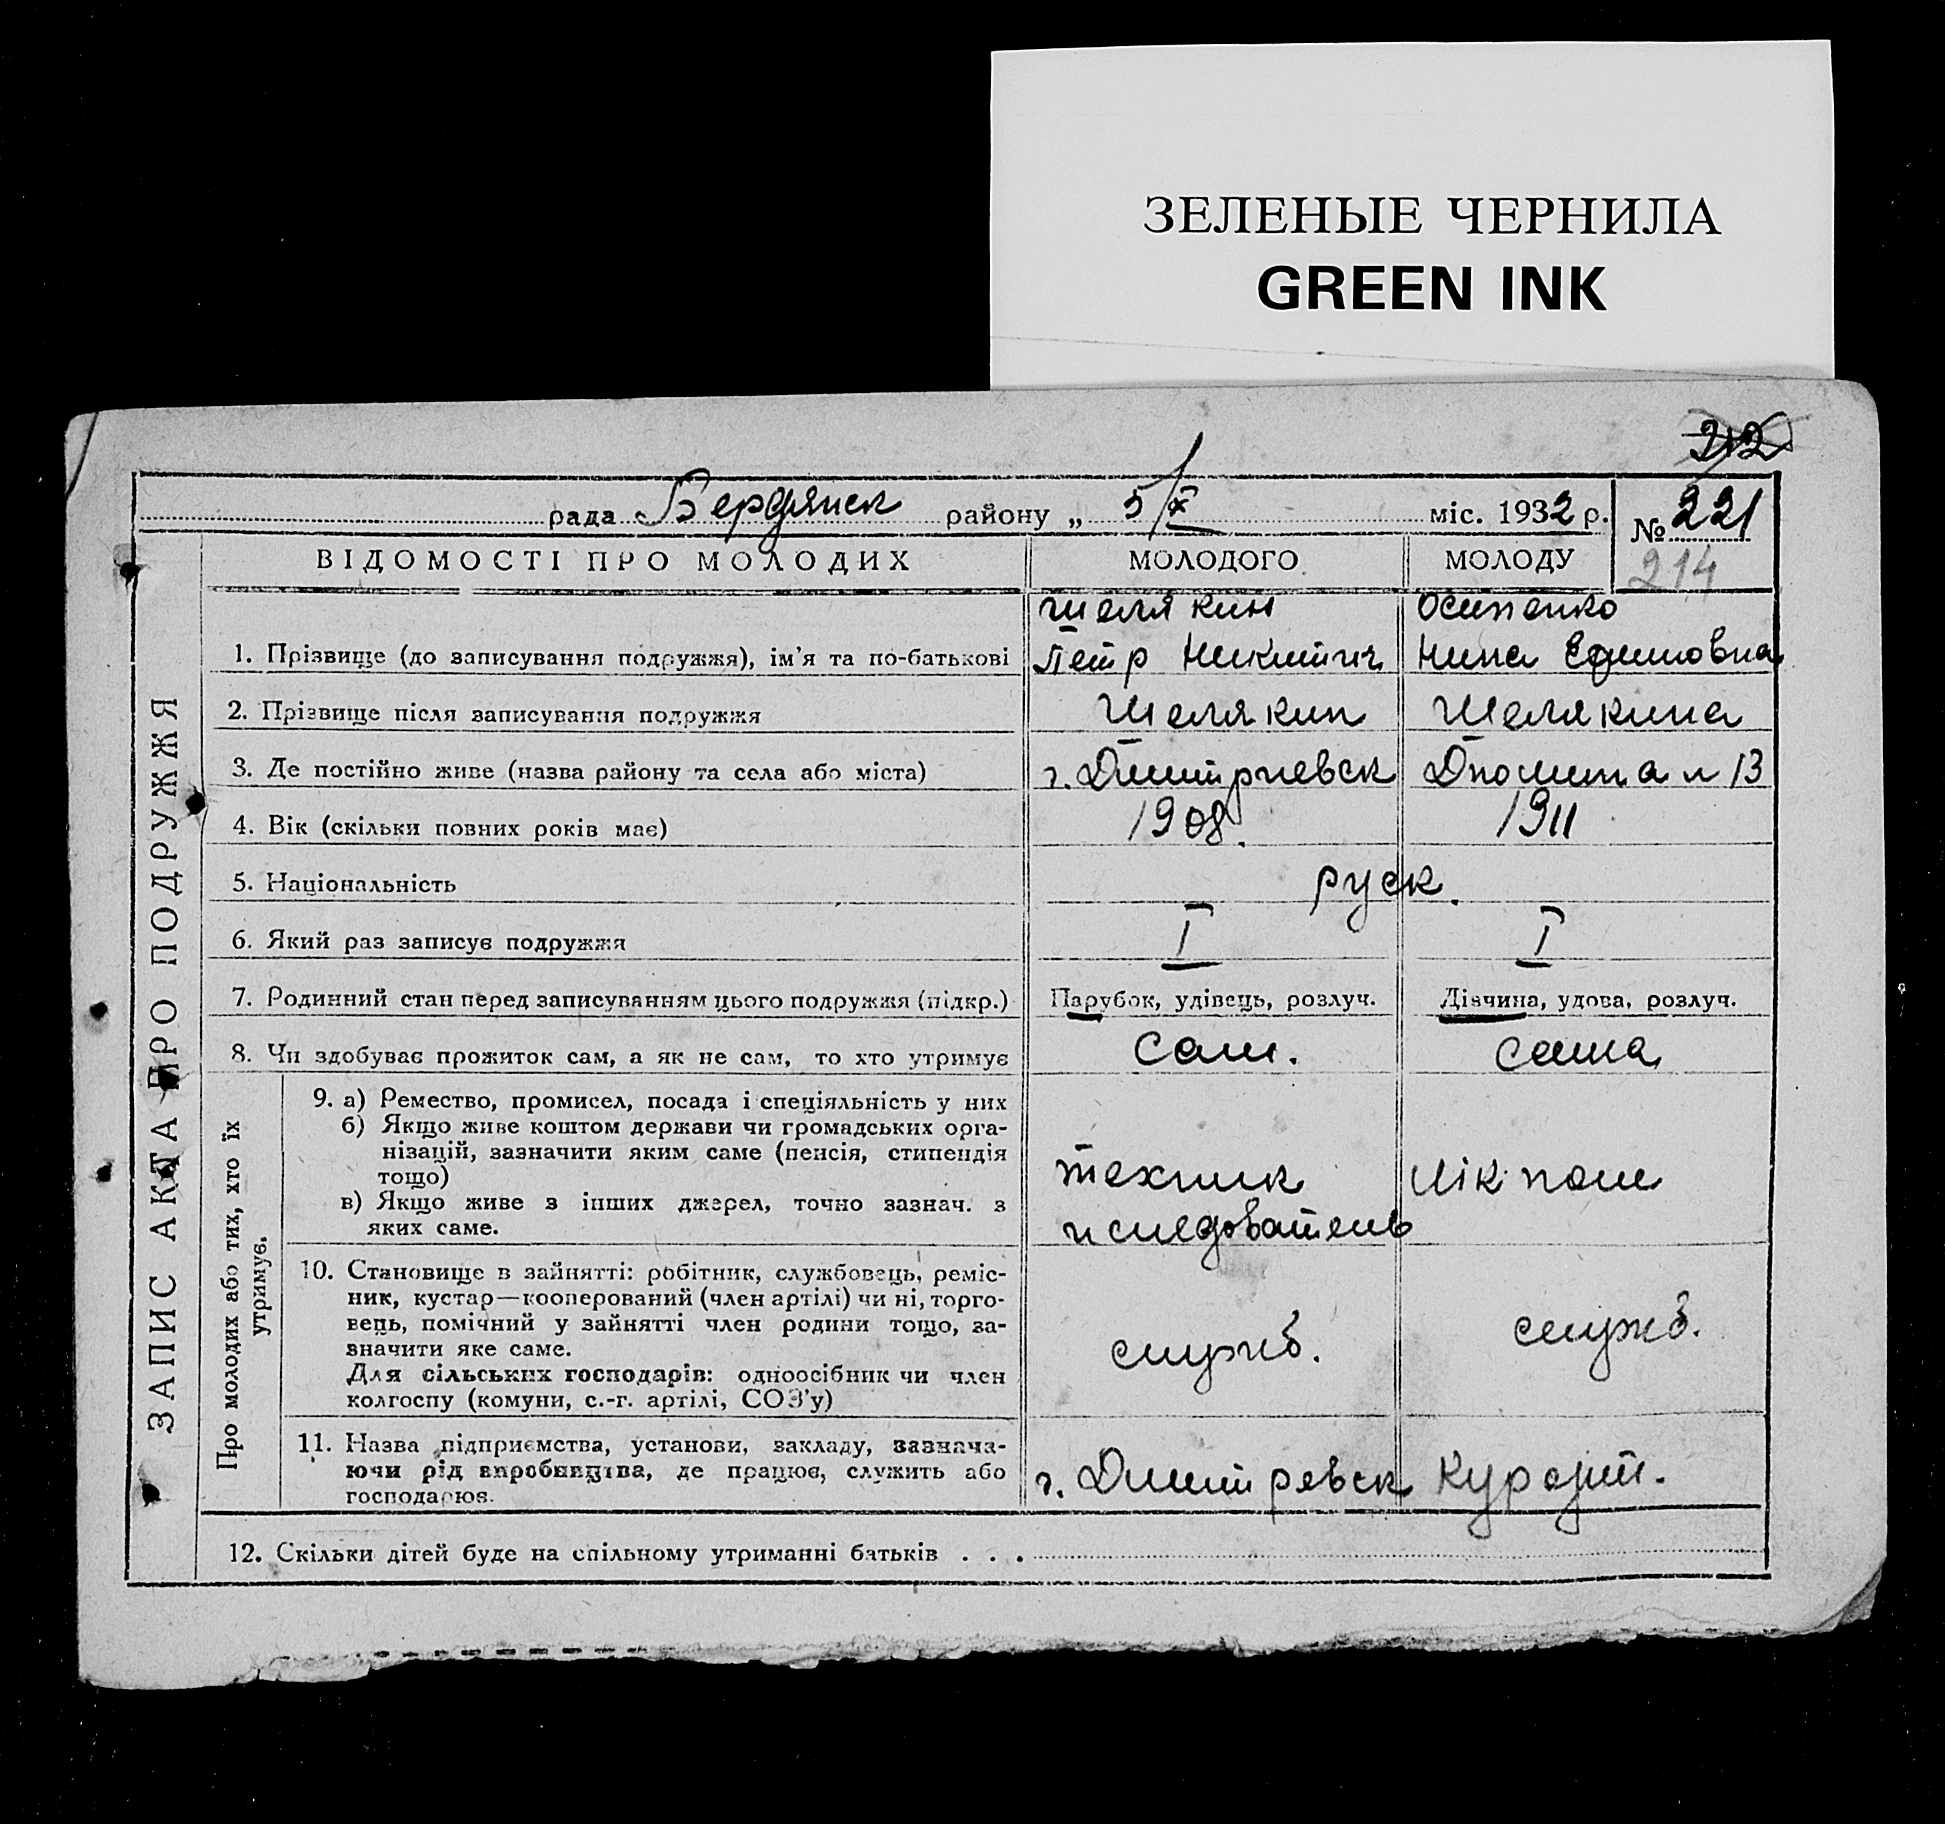 ЗЕЛЕНЫЕ ЧЕРНИЛА
GREEN INK
212
рада Бердянск району „ 5/X міс. 1932 р.
№ 221
214
ЗАПИС АКТА ПРО ПОДРУЖЖЯ
ВІДОМОСТІ ПРО МОЛОДИХ МОЛОДОГО МОЛОДУ
Шелякин Осипенко
1. Прізвище (до записування подружжя), ім'я та по-батькові Петр Никитич Нина
2. Прізвище після записування подружжя Шелякин Шелякина
3. Де постійно живе (назва району та села або міста) г. Дмитриевск 13
4. Вік (скільки повних років має) 1908. 1911
5. Національність руск.
6. Який раз записує подружжя I I
7. Родинний стан перед записуванням цього подружжя (підкр.) Парубок, удівець, розлуч. Дівчина, удова, розлуч.
8. Чи здобуває прожиток сам, а як не сам, то хто утримує Сам. Сама
Про молодих або тих, хто їх
утримує.
9. а) Ремество, промисел, посада і спеціяльність у них
б) Якщо живе коштом держави чи громадських орга-
нізацій, зазначити яким саме (пенсія, стипендія
тощо)
в) Якщо живе з інших джерел, точно зазнач. з
яких саме.
техник
иследователь
лік пом
10. Становище в зайнятті: робітник, службовець, реміс-
ник, кустар—кооперований (член артілі) чи ні, торго-
вець, помічний у зайнятті член родини тощо, за-
значити яке саме.
Для сільських господарів: одноосібник чи член
колгоспу (комуни, с.-г. артілі, СОЗ'у)
служб. служб.
11. Назва підприємства, установи, закладу, зазнача-
ючи рід виробництва, де працює, служить або
господарює.
г. Дмитревск Курорт.
12. Скільки дітей буде на спільному утриманні батьків . . .